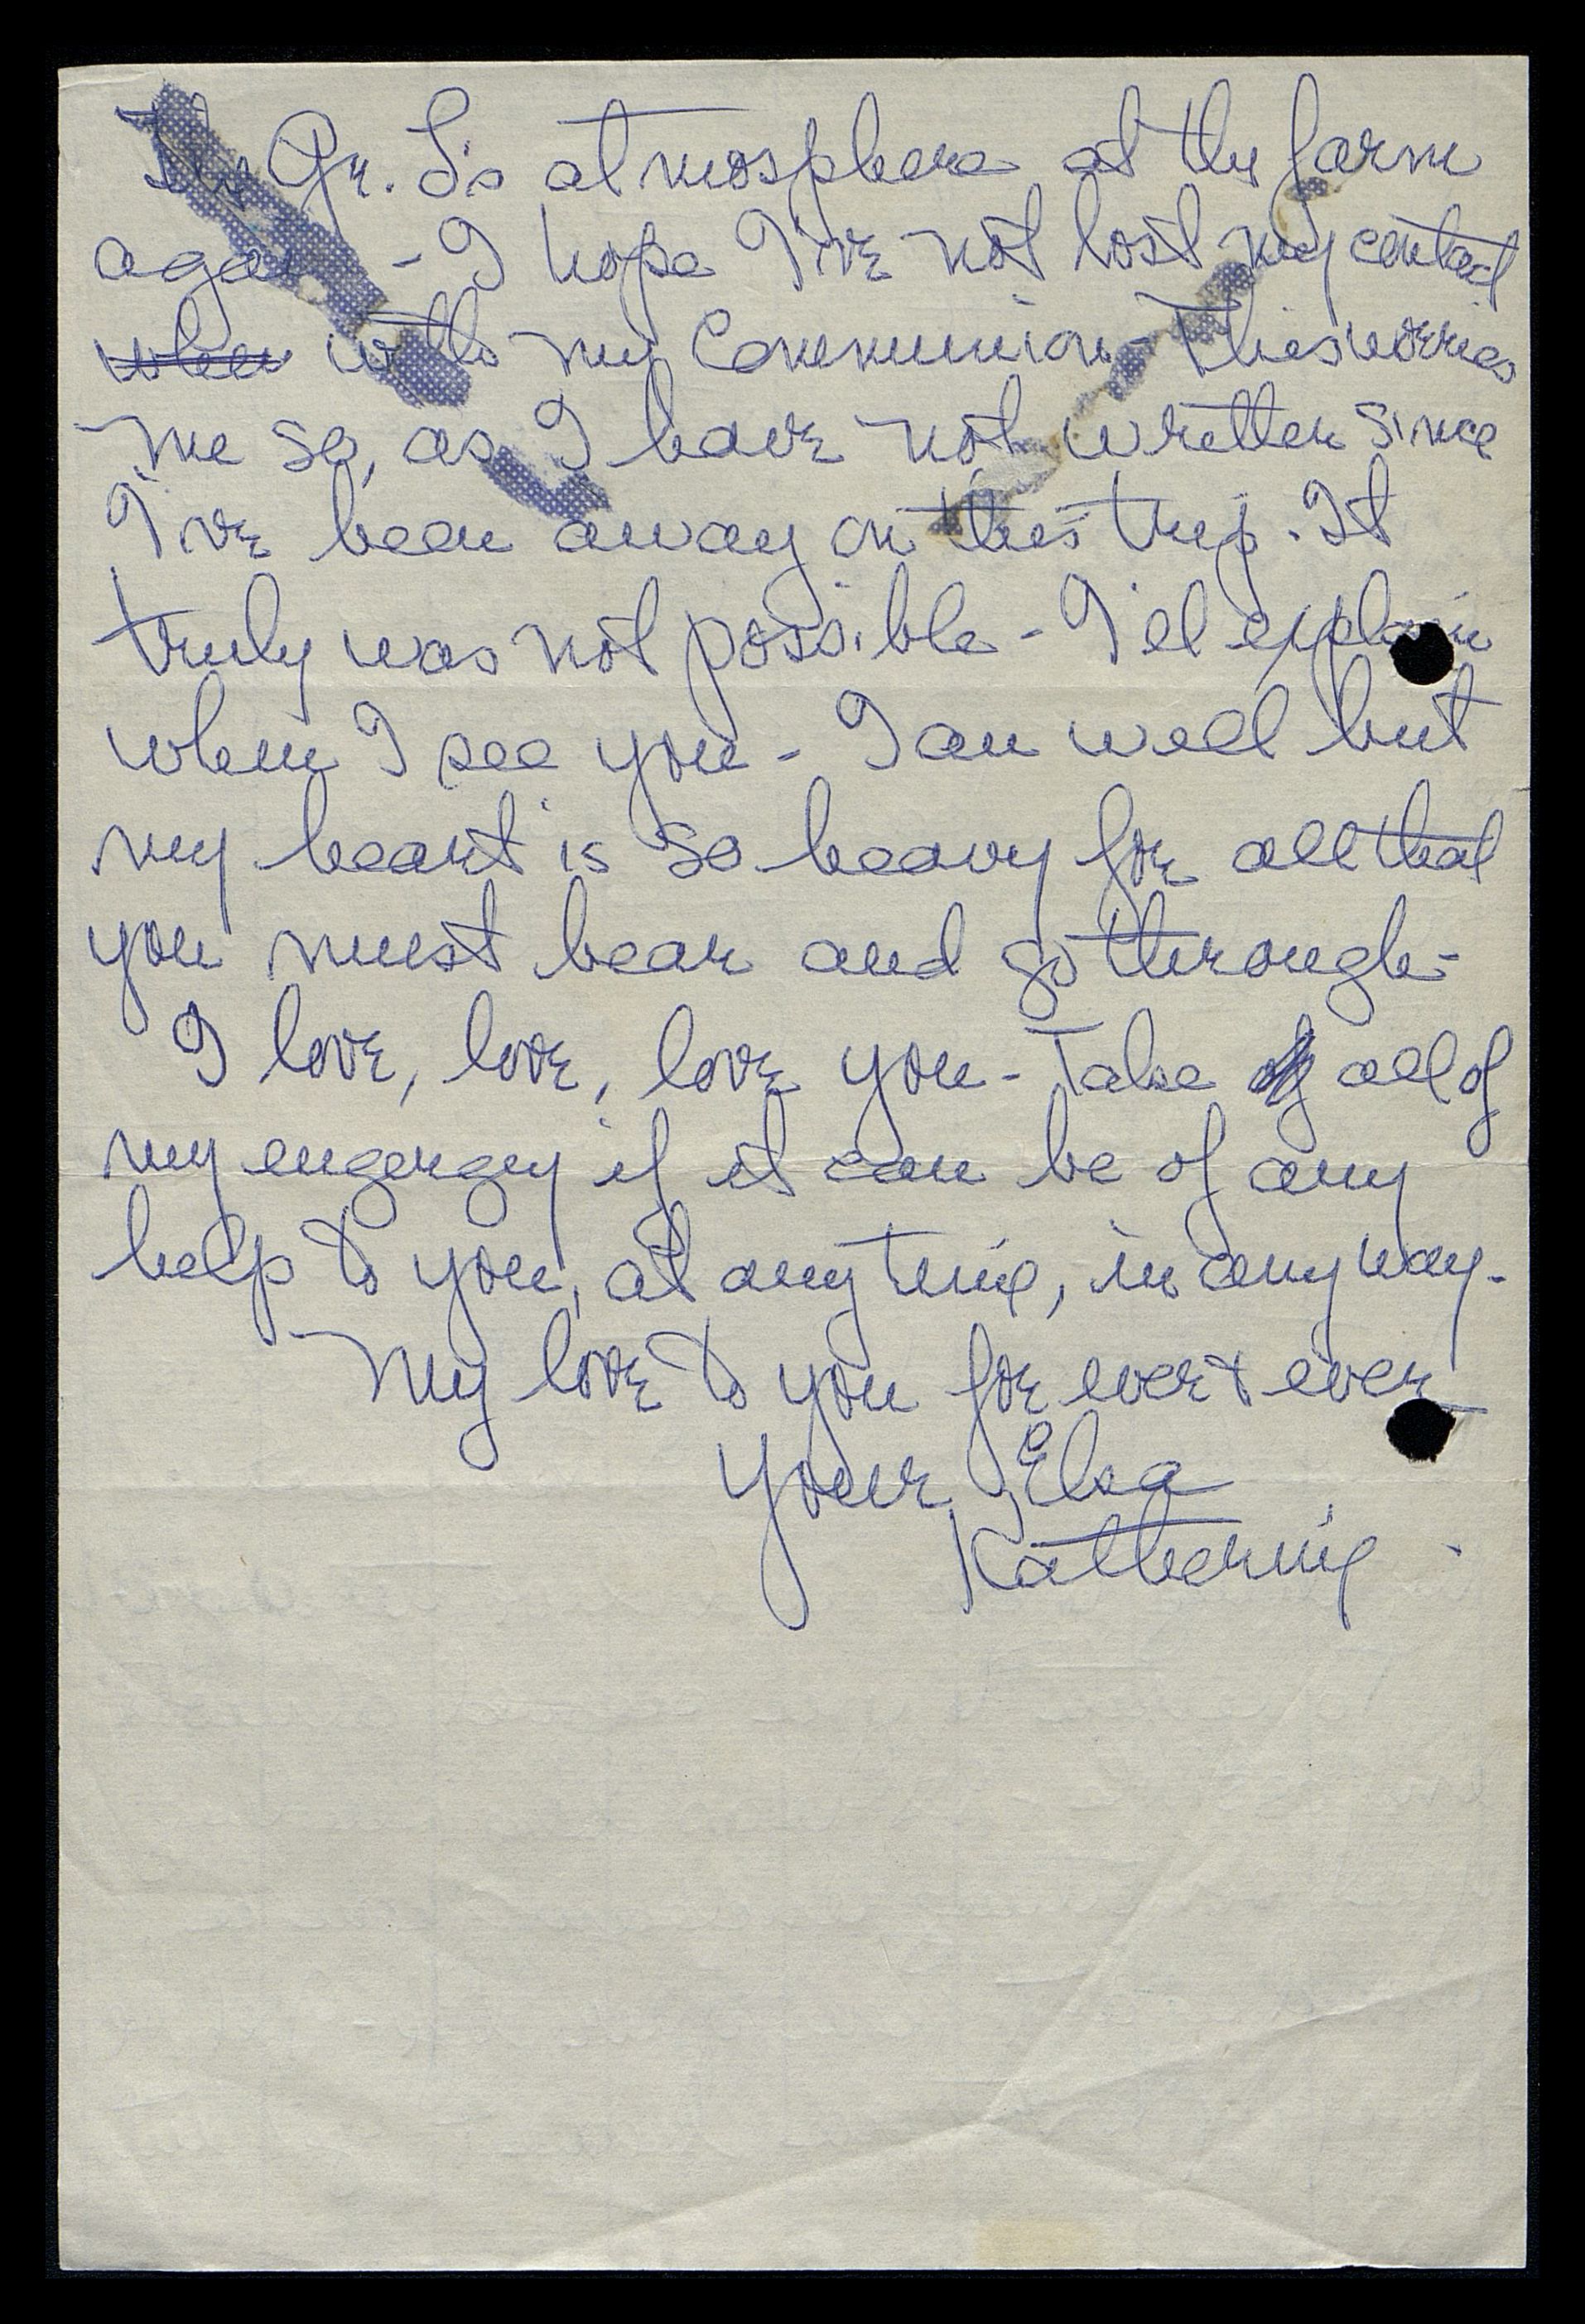 the Gr. S's atmosphere at the farm
again - I hope I've not lost my contact
when with my Communion - This worries
me so, as I have not written since
I've been away on this trip. It
truly was not possible - I'el explain
when I see you - I am well but
my heart is so heavy for all that
you must bear and go through -
I love, love, love you - Take of all of
my engergy if it can be of any
help to you, at any time, in any way.
My love to you for ever & ever
Your Elsa
Katherine.